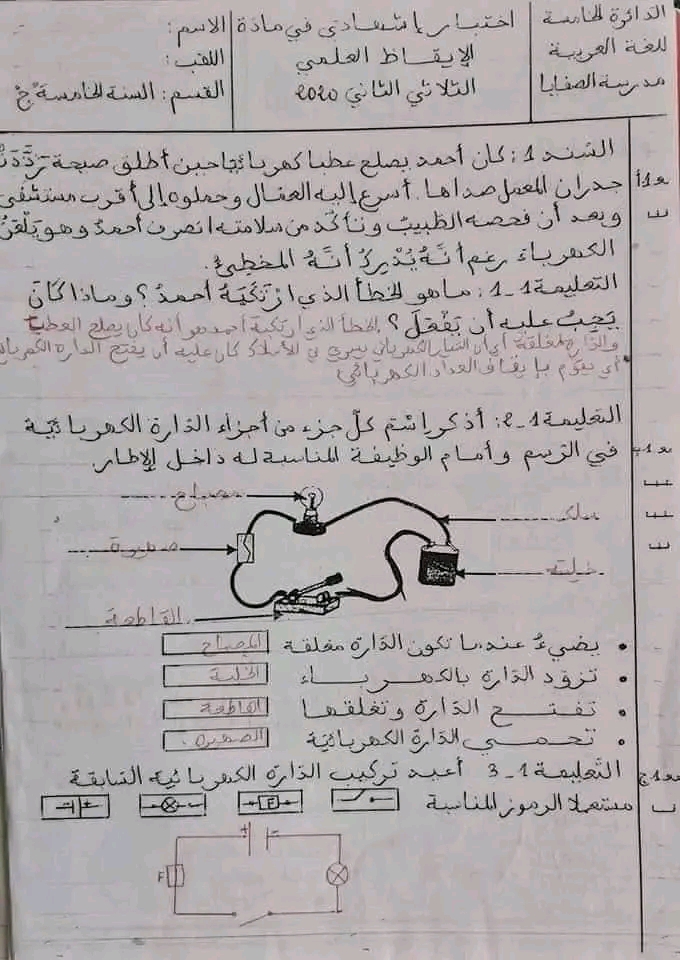 الدائرة الخامسة
للغة العربية
مدرسة الصفايا
اختبار إشهادي في مادة
الإيقاظ العلمي
الثلاثي الثاني 2020
الاسم:
اللقب:
القسم: السنة الخامسة ج
السند 1: كان أحمد يصلح عطبا كهربائيا حين أطلق صيحة رَدَّدَتْ
جدران المعمل صداها. أسرع إليه العمال وحملوه إلى أقرب مستشفى
وبعد أن فحصه الطبيب وتأكّد من سلامته انصرف أحمدُ وهو يَلْعَنُ
الكهرباءَ رغم أنَّهُ يُدْرِكُ أنَّهُ المخطِئُ.
التعليمة 1-1: ما هو الخطأ الذي ارْتَكَبَهُ أحمدُ؟ وماذا كَانَ
يَجِبُ عليه أن يَفْعَلَ؟ الخطأ الذي ارتكبه أحمد هو أنه كان يصلح العطب
والدارة مغلقة أي أن التيار الكهربائي يسري في الأسلاك كان عليه أن يفتح الدارة الكهربائية
أي يقوم بإيقاف العداد الكهربائي
مع 1أ
التعليمة 1-2: أذكر اسْم كلّ جزء من أجزاء الدّارة الكهربائيّة
في الرّسم وأمام الوظيفة المناسبة له داخل الإطار.
مع 1ب
مصباح
سلك
صهيرة
خلية
القاطعة
• يضيءُ عندما تكون الدّارة مغلقة المصباح
• تزوّد الدّارة بالكهربـــاء الخلية
• تفتـــح الدّارة وتغلقـها القاطعة
• تحمـــي الدّارة الكهربائيّة الصهيرة.
التّعليمة 1-3 أعيد تركيب الدّارة الكهربائية السّابقة
مستعملا الرموز المناسبة
مع 1ج
F
+ -
F